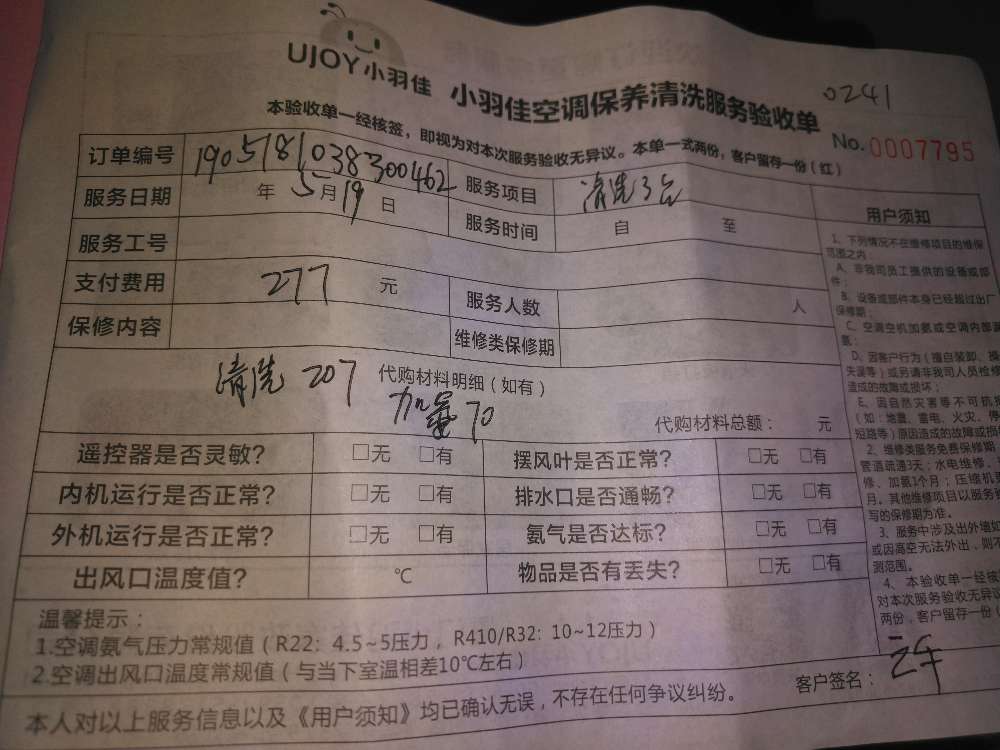 UJOY小羽佳 小羽佳空调保养清洗服务验收单
0241
本验收单一经核签，即视为对本次服务验收无异议。本单一式两份，客户留存一份（红）
No. 0007795
订单编号 1905181038300462 服务项目 清洗3台
服务日期 年 5月19日 服务时间 自 至
服务工号
支付费用 277 元 服务人数 人
保修内容 维修类保修期
清洗 207 代购材料明细（如有）
70
代购材料总额： 元
遥控器是否灵敏？ □无 □有 摆风叶是否正常？ □无 □有
内机运行是否正常？ □无 □有 排水口是否通畅？ □无 □有
外机运行是否正常？ □无 □有 氨气是否达标？ □无 □有
出风口温度值？ ℃ 物品是否有丢失？ □无 □有
温馨提示：
1.空调氨气压力常规值（R22：4.5~5压力，R410/R32：10~12压力）
2.空调出风口温度常规值（与当下室温相差10℃左右）
本人对以上服务信息以及《用户须知》均已确认无误，不存在任何争议纠纷。
客户签名：
用户须知
1、下列情况不在维修项目的维保
范围之内：
A、非我司员工提供的设备或部
件；
B、设备或部件本身已经超过出厂
保修期；
C、空调空机加氨或空调内部
氨；
D、因客户行为（擅自装卸、操
失误等）或另请非我司人员检修
造成的故障或损坏；
E、因自然灾害等不可抗
（如：地震、雷电、火灾、停
短路等）原因造成的故障或损
2、维修类服务免费保修期
管道疏通3天；水电维修、
修、加氨1个月；压缩机
月。其他维修项目以服务
写的保修期为准。
3、服务中涉及出外墙如
或因高空无法外出，则不
测范围。
4、本验收单一经核
对本次服务验收无异议
两份，客户留存一份